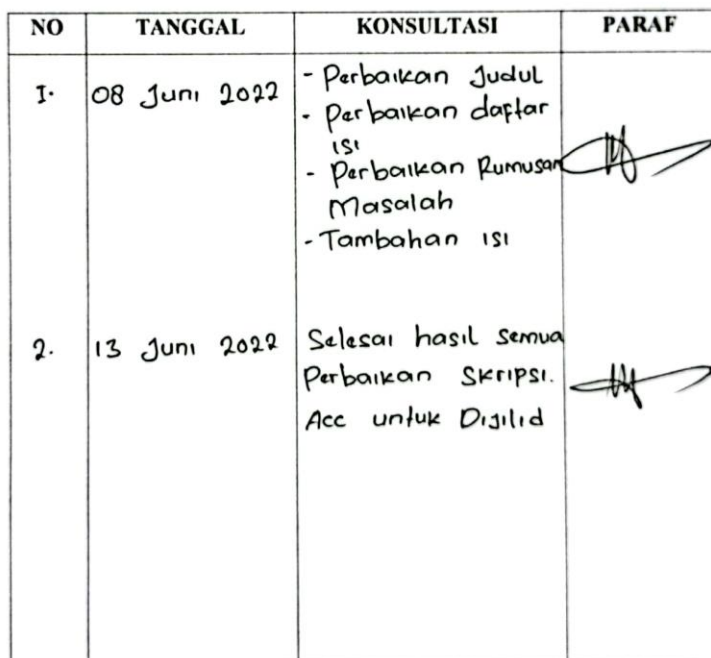 NO TANGGAL KONSULTASI PARAF
1. 08 Juni 2022 - Perbaikan Judul
- Perbaikan daftar
isi
- Perbaikan Rumusan
Masalah
- Tambahan isi
2. 13 Juni 2022 Selesai hasil Semua
Perbaikan Skripsi.
Acc untuk Dijilid